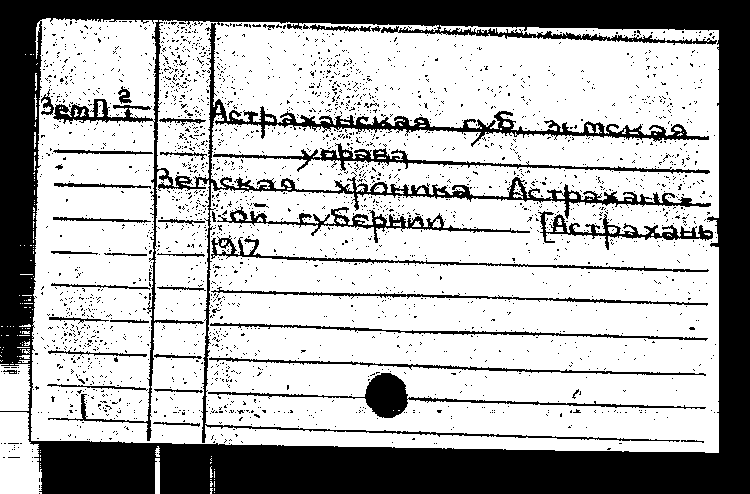 ЗетП 2/1 Астраханская губ. земская
управа
Земская хроника Астраханс-
кой губернии. [Астрахань]
1917